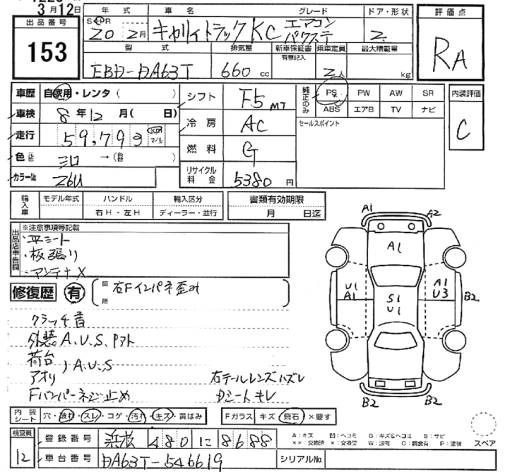 3月12日
出品番号 153
年式 車名 グレード ドア・形状 評価点
20年2月 キャリィトラックKC エアコン パワステ 2 RA
型式 排気量 新車保証書 有無記入 乗車定員 最大積載量
EBD-DA63T 660 cc 2人 kg
車歴 自家用・レンタ( ) シフト F5 MT 純正のみ PS PW AW SR 内装評価
ABS エアB TV ナビ C
車検 8年12月( 日) 冷房 AC セールスポイント
走行 59,793
燃料 G
色 シロ →( )
カラーNo. Z6U リサイクル料金 5380円
輸入車 モデル年式 ハンドル 輸入区分 書類有効期限
右H・左H ディーラー・並行 月 日迄
※注意事項等記載
・平シート
・板張り
・アンテナ×
修復歴 有 右Fインパネ歪み
クラッチ音
外装A.U.S.
荷台
アオリ )A.U.S
右テールレンズハズレ
Fバンパーネジ止め Dシートキレ
A1 A2
A1
U1 A1 S1 U1 A1 U3 B2
B2 A2
内装 シート 穴・汚れ・スレ・コゲ・汚れ・キズ・黄ばみ Fガラス キズ・飛石・×要す
A:キズ B:ヘコミ S:サビ スペア
検査員 12 登録番号 浜松 480 に 8688
車台番号 DA63T-546619 シリアルNo.